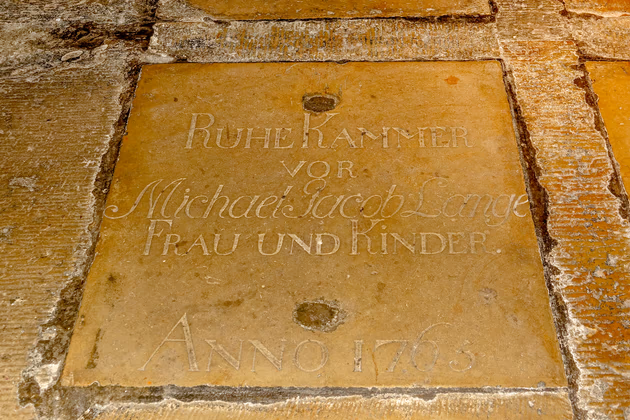 RUHE KAMMER
VOR
Michael Jacob Lange
FRAU UND KINDER
ANNO 1765